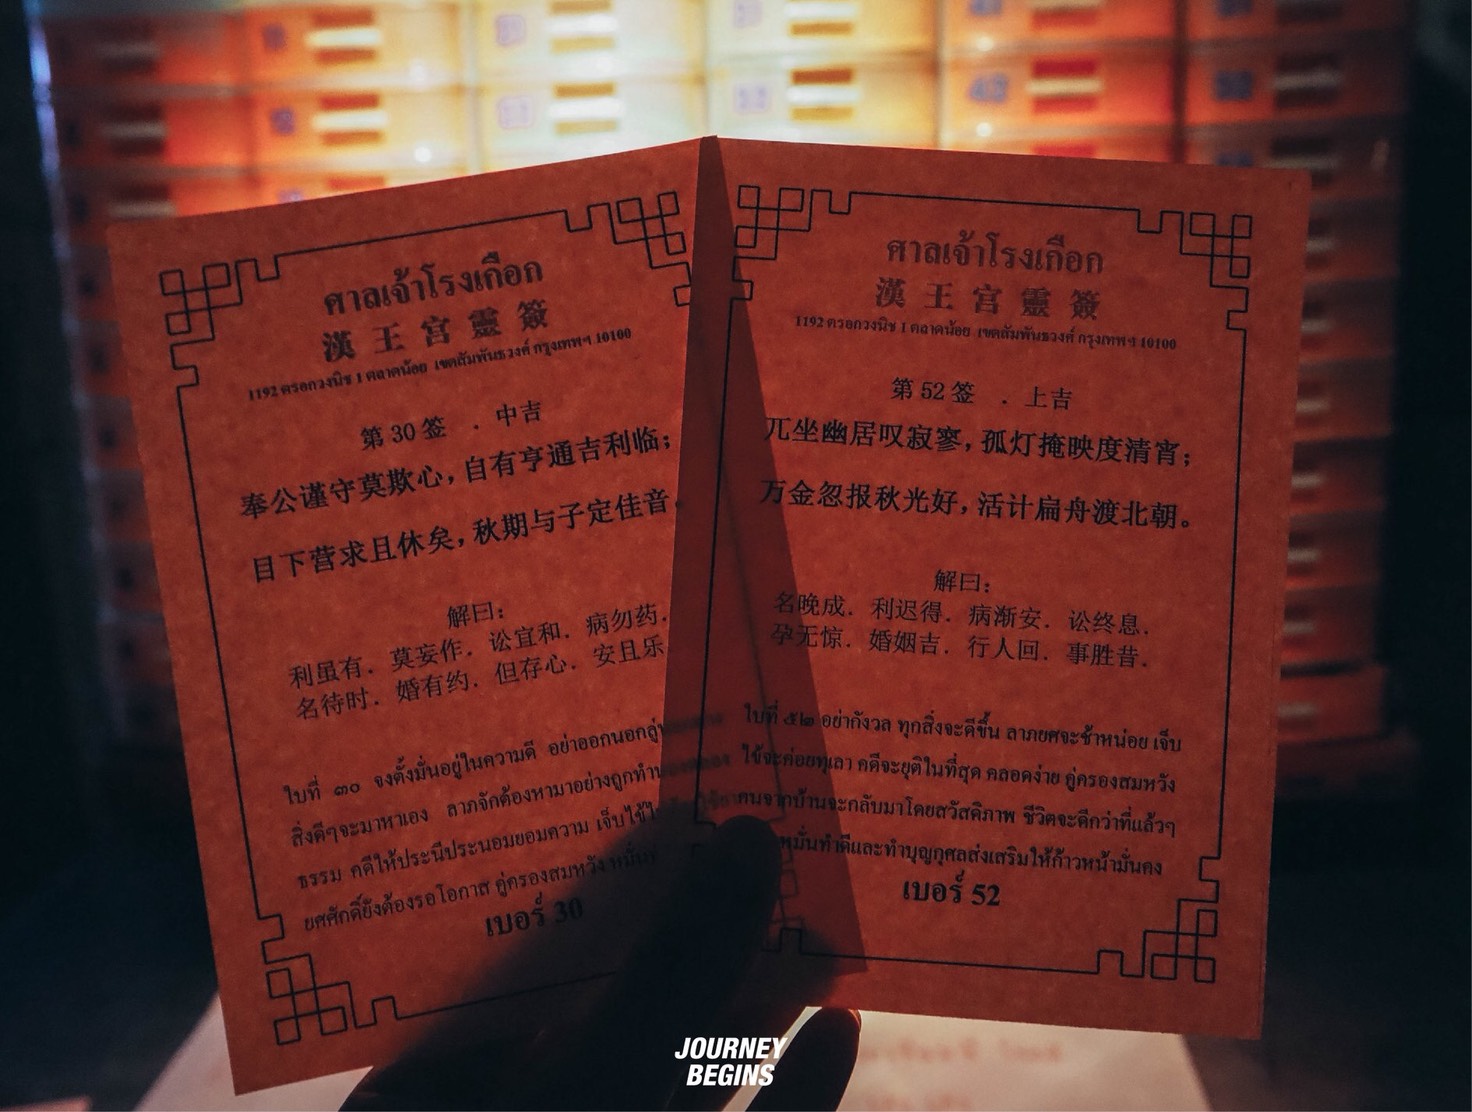 ศาลเจ้าโรงเกือก
漢王宫靈簽
1192 ตรอกวงนิช 1 ตลาดน้อย เขตสัมพันธวงศ์ กรุงเทพฯ 10100
第 30 签 . 中吉
奉公谨守莫欺心，自有亨通吉利临；
目下营求且休矣，秋期与子定佳音。
解曰：
利虽有．莫妄作．讼宜和．病勿药．
名待时．婚有约．但存心．安且乐．
ใบที่ ๓๐ จงตั้งมั่นอยู่ในความดี อย่าออกนอกลู่
สิ่งดีๆจะมาหาเอง ลาภจักต้องหามาอย่างถูกทำ
ธรรม คดีให้ประนีประนอมยอมความ เจ็บไข้
ยศศักดิ์ยังต้องรอโอกาส คู่ครองสมหวัง
เบอร์ 30
ศาลเจ้าโรงเกือก
漢王宫靈簽
1192 ตรอกวงนิช 1 ตลาดน้อย เขตสัมพันธวงศ์ กรุงเทพฯ 10100
第 52 签 . 上吉
兀坐幽居叹寂寥，孤灯掩映度清宵；
万金忽报秋光好，活计扁舟渡北朝。
解曰：
名晚成．利迟得．病渐安．讼终息．
孕无惊．婚姻吉．行人回．事胜昔．
ใบที่ ๕๒ อย่ากังวล ทุกสิ่งจะดีขึ้น ลาภยศจะช้าหน่อย เจ็บ
ไข้จะค่อยทุเลา คดีจะยุติในที่สุด คลอดง่าย คู่ครองสมหวัง
คนจากบ้านจะกลับมาโดยสวัสดิภาพ ชีวิตจะดีกว่าที่แล้วๆ
หมั่นทำดีและทำบุญกุศลส่งเสริมให้ก้าวหน้ามั่นคง
เบอร์ 52
JOURNEY
BEGINS